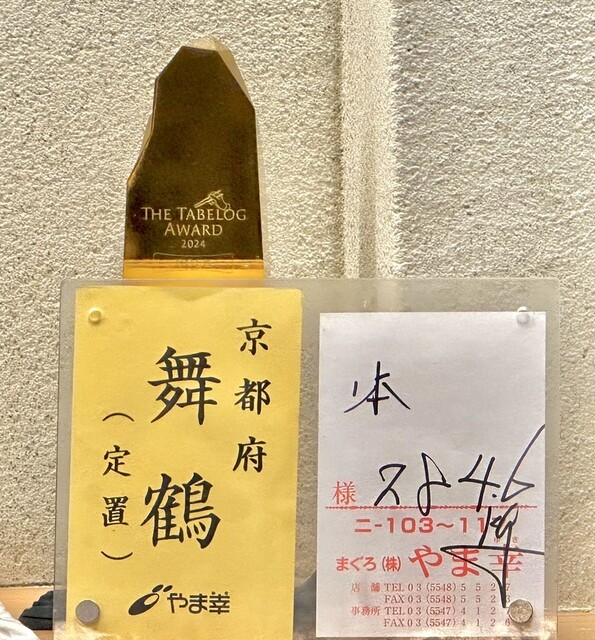 THE TABELOG
AWARD
2024
京都府
舞鶴
(定置)
やま幸
本
様
ニ-103~11
まぐろ(株)やま幸
店舗 TEL 03(5548)552
FAX 03(5548)552
事務所 TEL 03(5547)412
FAX 03(5547)412